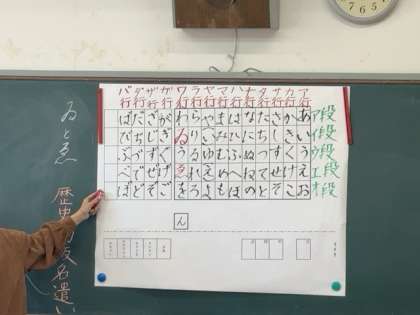 ア段
イ段
ウ段
エ段
オ段
ア行 あいうえお
カ行 かきくけこ
サ行 さしすせそ
タ行 たちつてと
ナ行 なにぬねの
ハ行 はひふへほ
マ行 まみむめも
ヤ行 やいゆえよ
ラ行 らりるれろ
ワ行 わゐうゑを
ん
ガ行 がぎぐげご
ザ行 ざじずぜぞ
ダ行 だぢづでど
バ行 ばびぶべぼ
ゐとゑ
歴史的仮名遣い